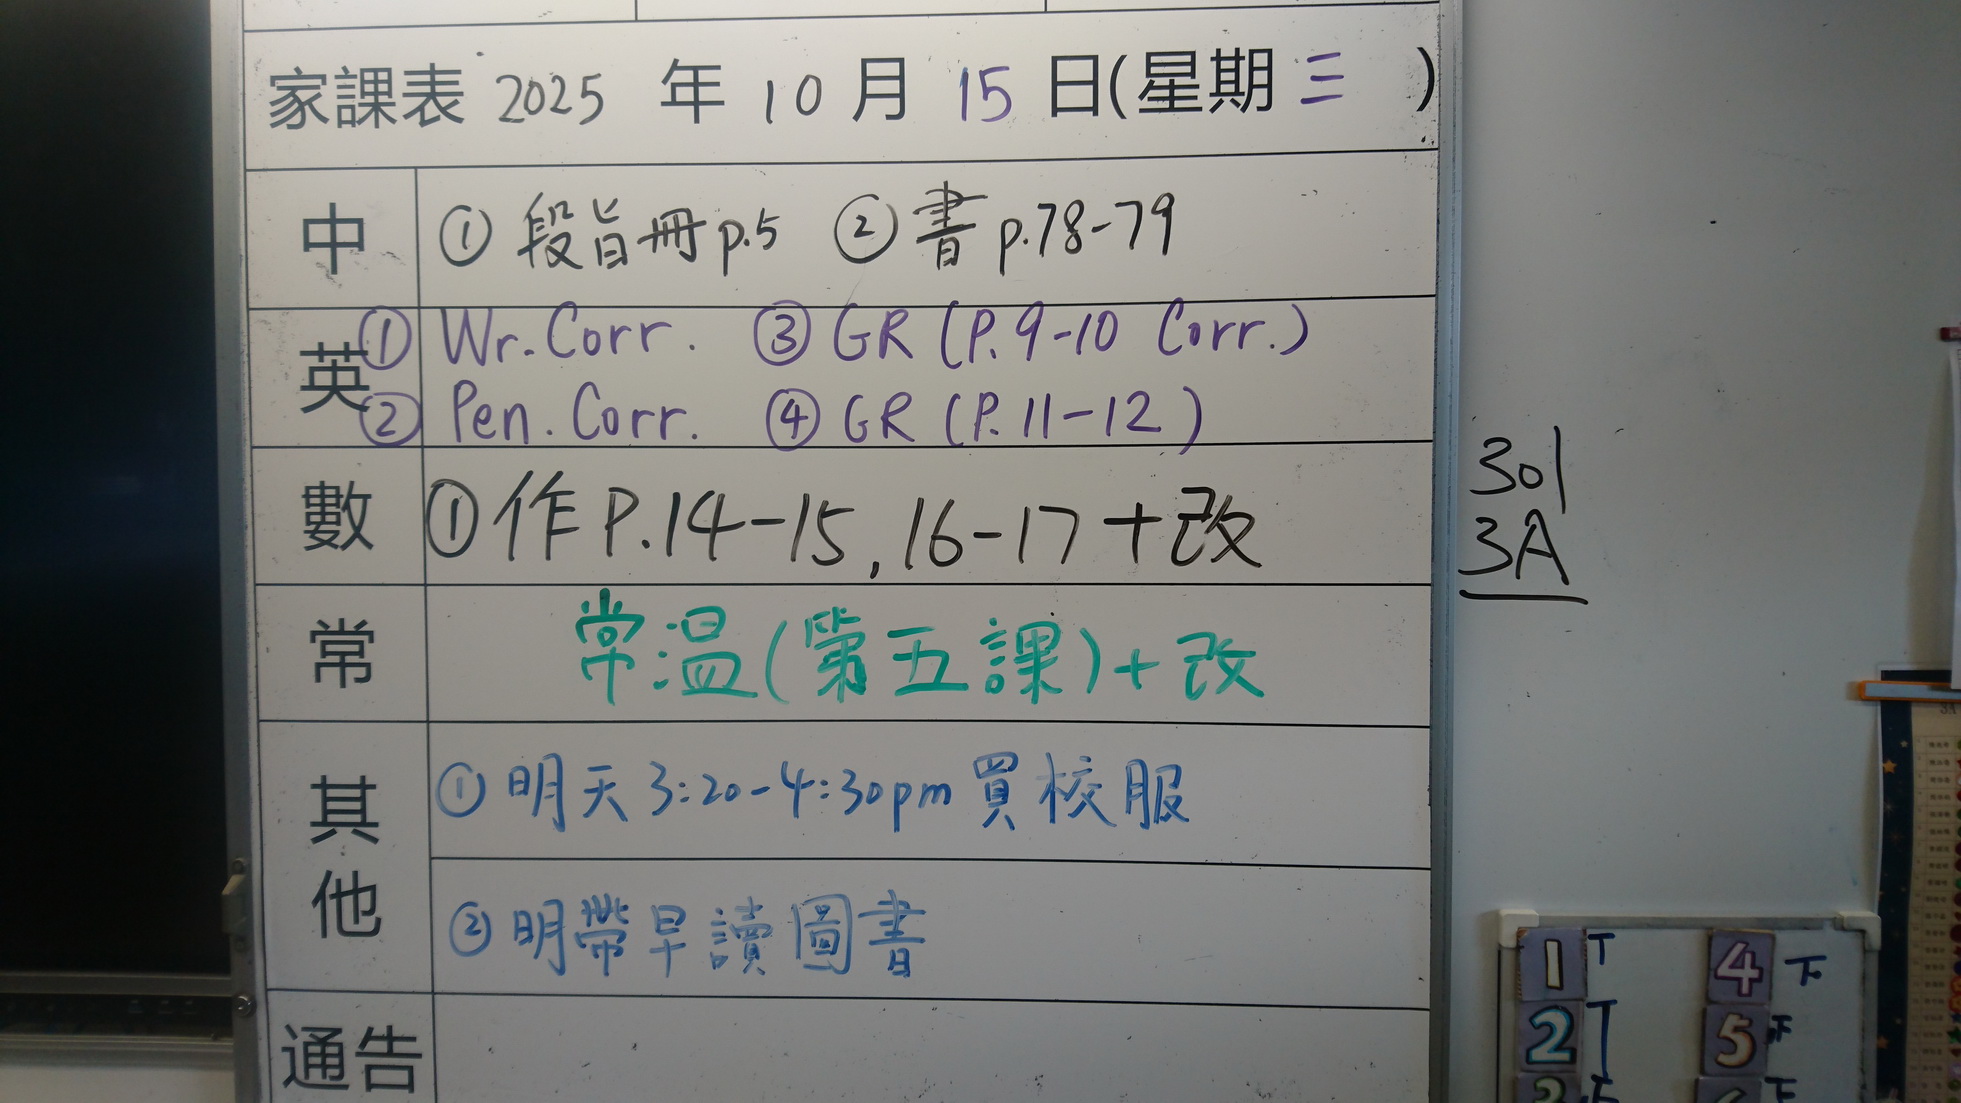 家課表 2025 年 10 月 15 日(星期三 )
中 ① 段旨冊 p.5 ② 書 p.78-79
英 ① Wr. Corr. ③ GR (P.9-10 Corr.)
② Pen. Corr. ④ GR (P.11-12)
數 ① 作 P.14-15, 16-17 + 改
常 常溫(第五課) + 改
其他 ① 明天 3:20-4:30pm 買校服
② 明帶早讀圖書
通告
301
3A
1 T 4 下
2 T 5 下